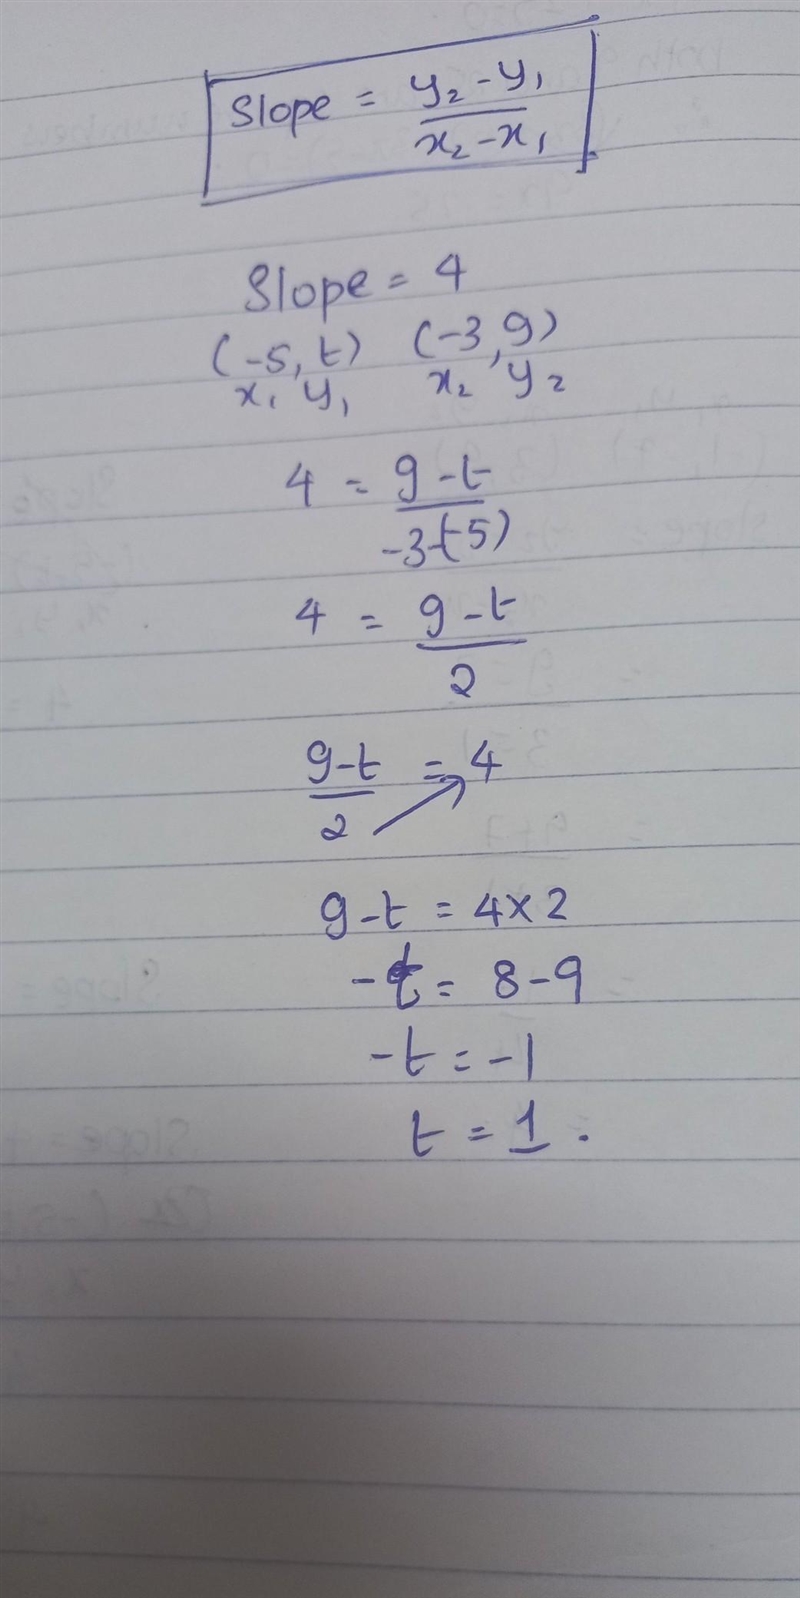 Slope = y₂ - y₁ / x₂ - x₁
Slope = 4
(-5, t) (-3, 9)
x₁ y₁ x₂ y₂
4 = 9 - t / -3-(-5)
4 = 9 - t / 2
9 - t / 2 = 4
9 - t = 4 × 2
-t = 8 - 9
-t = -1
t = 1.